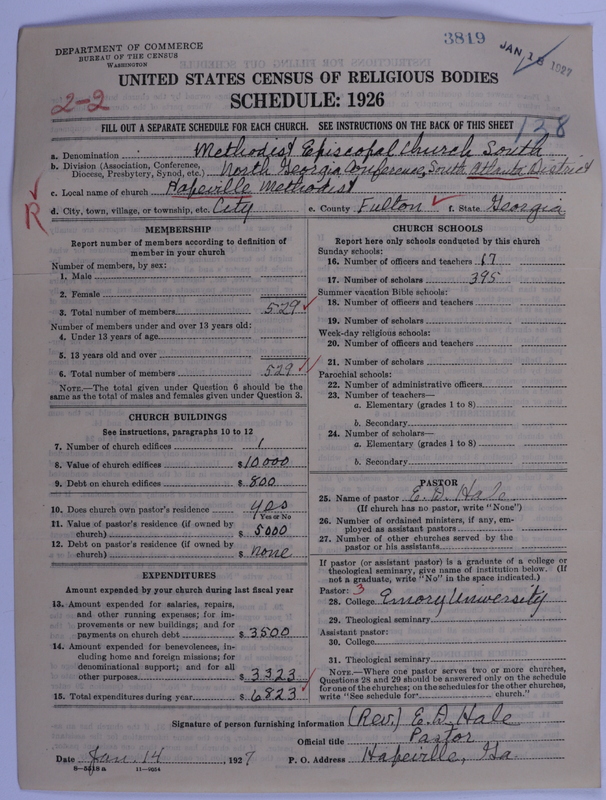 3819
JAN 18 1927
DEPARTMENT OF COMMERCE
BUREAU OF THE CENSUS
WASHINGTON
UNITED STATES CENSUS OF RELIGIOUS BODIES
SCHEDULE: 1926
2-2
138
FILL OUT A SEPARATE SCHEDULE FOR EACH CHURCH. SEE INSTRUCTIONS ON THE BACK OF THIS SHEET
a. Denomination Methodist Episcopal Church South
b. Division (Association, Conference, Diocese, Presbytery, Synod, etc.) North Georgia Conference, South Atlanta District
c. Local name of church Hapeville Methodist
R
d. City, town, village, or township, etc. City e. County Fulton f. State Georgia
MEMBERSHIP
Report number of members according to definition of
member in your church
Number of members, by sex:
1. Male
2. Female
3. Total number of members 529
Number of members under and over 13 years old:
4. Under 13 years of age
5. 13 years old and over
6. Total number of members 529
NOTE.—The total given under Question 6 should be
same as the total of males and females given under Question 3.
CHURCH BUILDINGS
See instructions, paragraphs 10 to 12
7. Number of church edifices 1
8. Value of church edifices $10000
9. Debt on church edifices $800
10. Does church own pastor's residence yes
Yes or No
11. Value of pastor's residence (if owned by
church) $5000
12. Debt on pastor's residence (if owned by
church) $none
EXPENDITURES
Amount expended by your church during last fiscal year
13. Amount expended for salaries, repairs,
and other running expenses; for im-
provements or new buildings; and for
payments on church debt $3500
14. Amount expended for benevolences, in-
cluding home and foreign missions; for
denominational support; and for all
other purposes $3323
15. Total expenditures during year $6823
CHURCH SCHOOLS
Report here only schools conducted by this church
Sunday schools:
16. Number of officers and teachers 17
17. Number of scholars 395
Summer vacation Bible schools:
18. Number of officers and teachers
19. Number of scholars
Week-day religious schools:
20. Number of officers and teachers
21. Number of scholars
Parochial schools:
22. Number of administrative officers
23. Number of teachers—
a. Elementary (grades 1 to 8)
b. Secondary
24. Number of scholars—
a. Elementary (grades 1 to 8)
b. Secondary
PASTOR
25. Name of pastor E. D. Hale
(If church has no pastor, write "None")
26. Number of ordained ministers, if any, em-
ployed as assistant pastors
27. Number of other churches served by the
pastor or his assistants
If pastor (or assistant pastor) is a graduate of a college or
theological seminary, give name of institution below. (If
not a graduate, write "No" in the space indicated.)
Pastor: 3
28. College Emory University
29. Theological seminary
Assistant pastor:
30. College
31. Theological seminary
NOTE.—Where one pastor serves two or more churches,
Questions 28 and 29 should be answered only on the schedule
for one of the churches; on the schedules for the other churches,
write "See schedule for church."
Signature of person furnishing information (Rev.) E. D. Hale
Official title Pastor
Date Jan. 14, 1927 P. O. Address Hapeville, Ga.
8-5518 a 11-9034